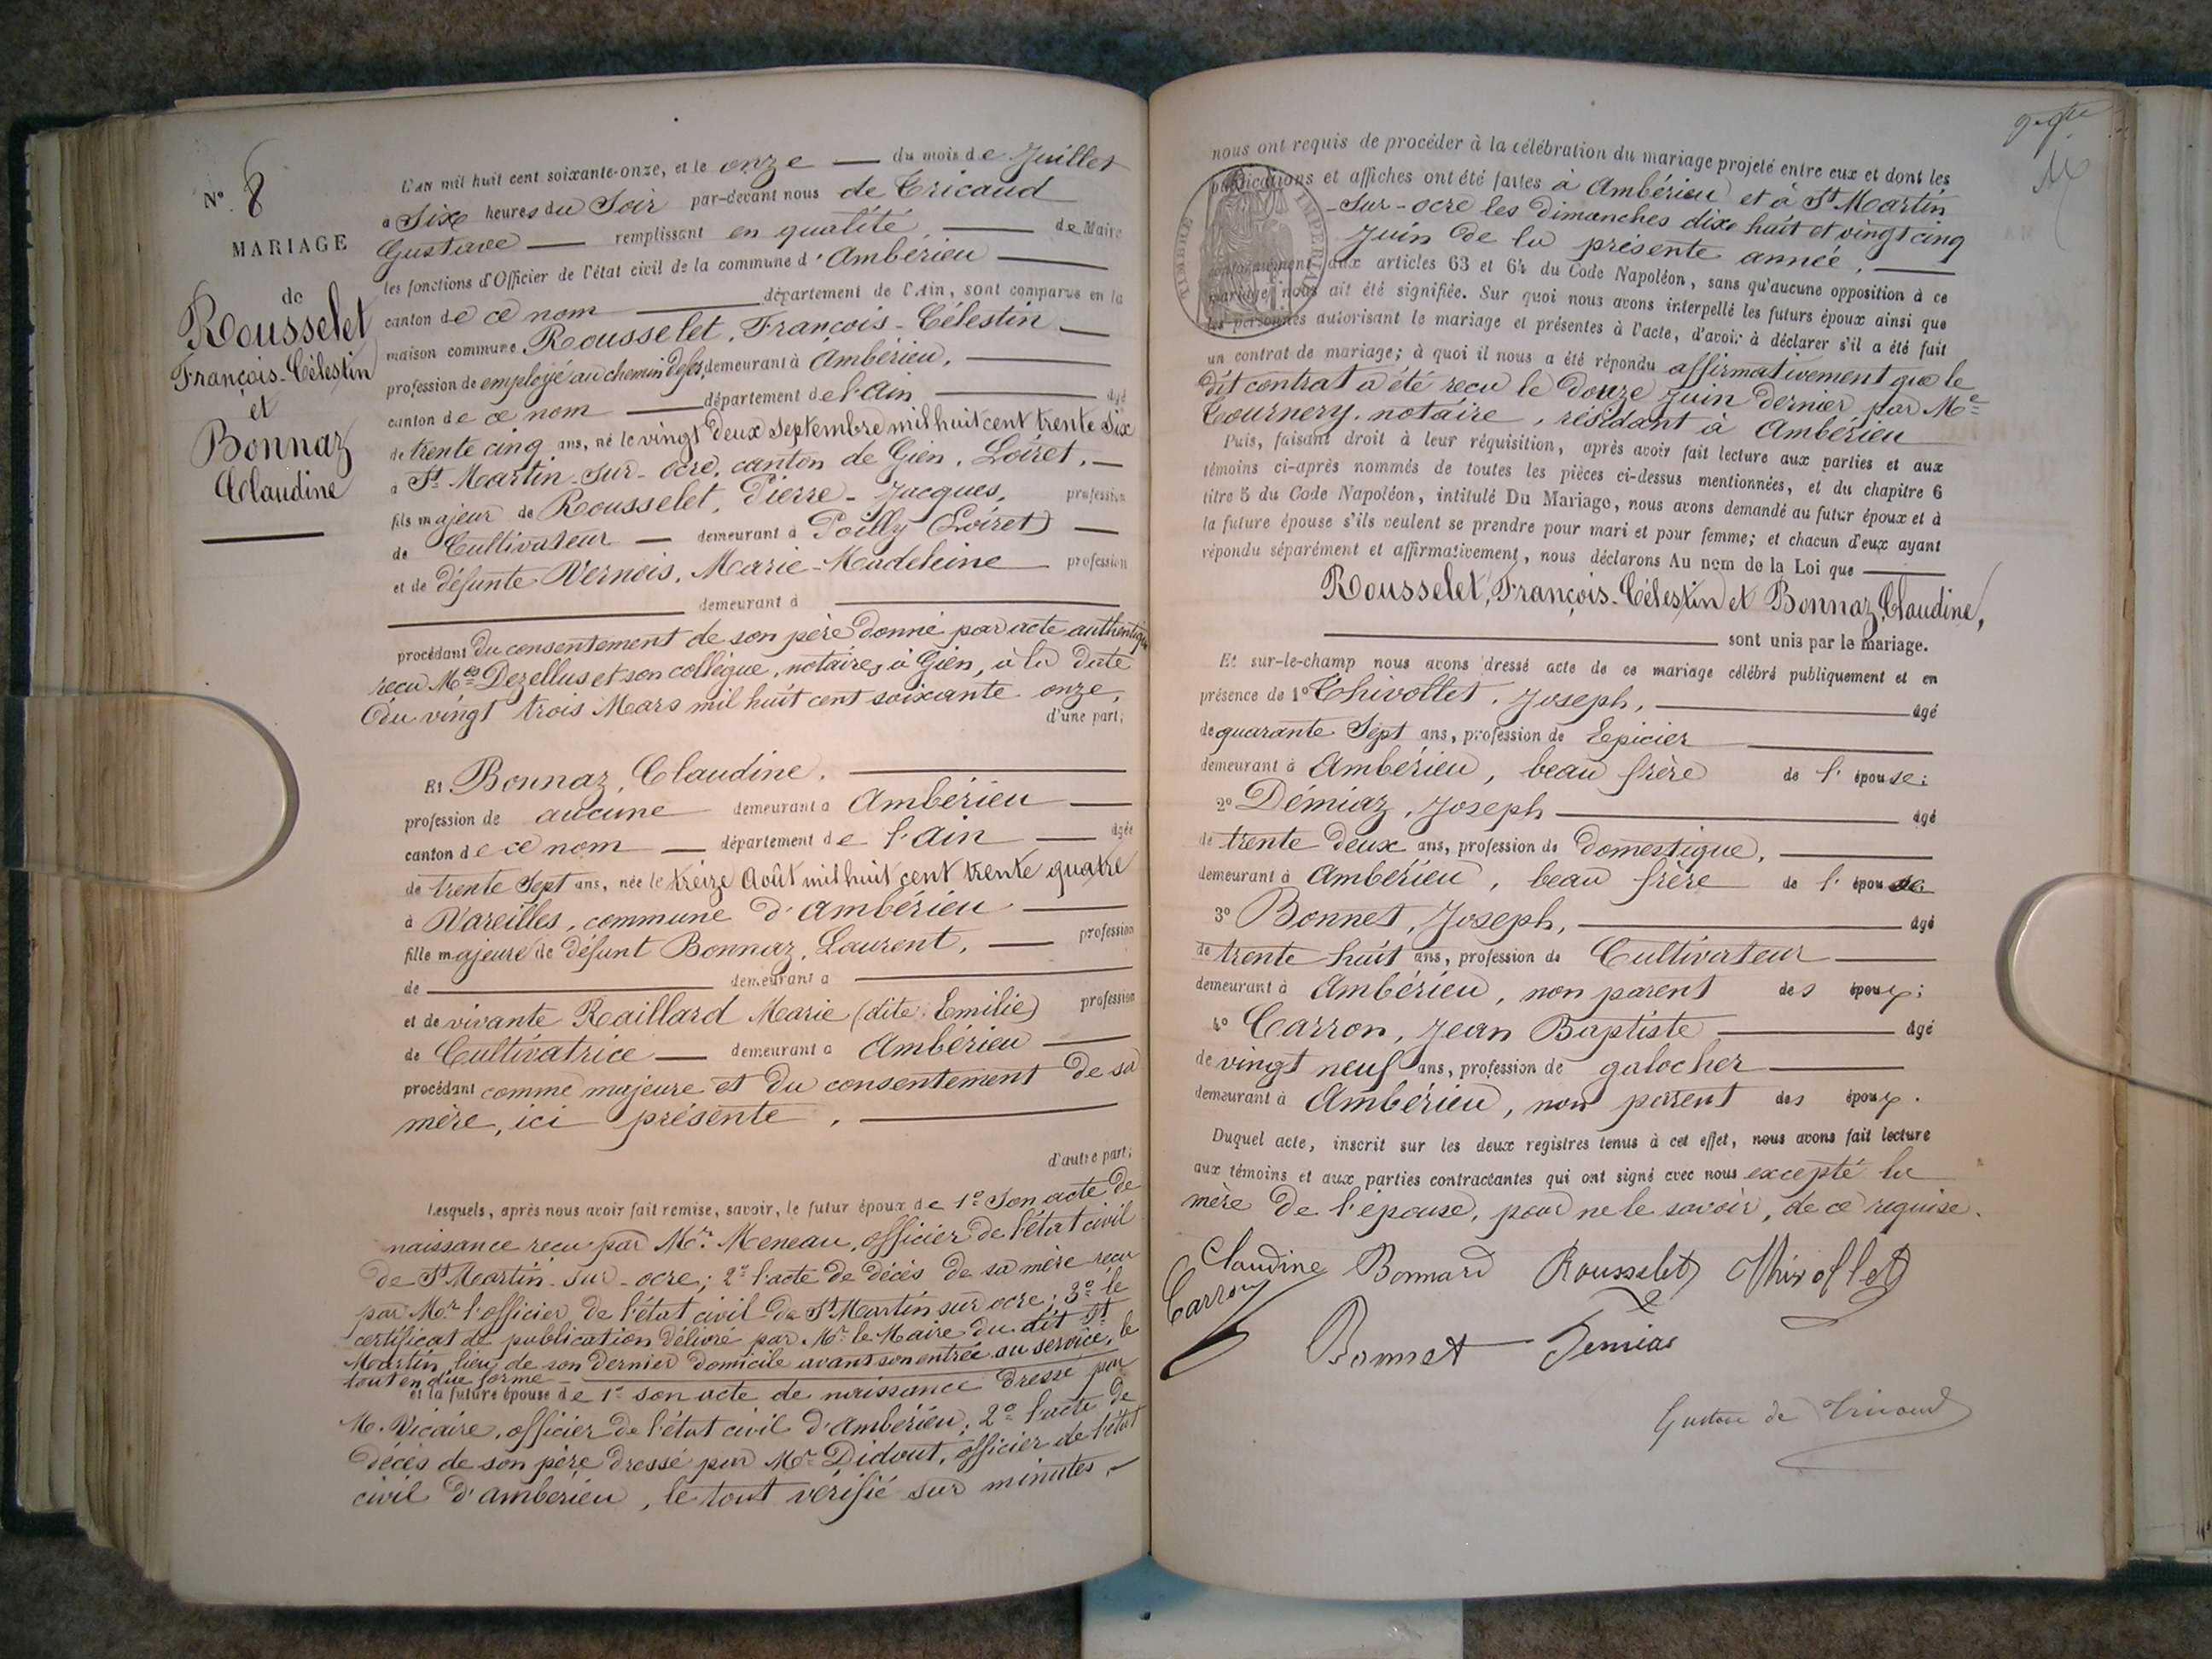 N° 8
MARIAGE
de
Rousselet
François-Célestin
et
Bonnaz
Claudine
L'an mil huit cent soixante-onze, et le onze du mois de Juillet
à Six heures du Soir par-devant nous de Tricaud
Gustave remplissant en qualité de Maire
les fonctions d'Officier de l'état civil de la commune d'Ambérieu
canton de ce nom département de l'Ain, sont comparus en la
maison commune Rousselet, François-Célestin
profession de employé au chemin de fer, demeurant à Ambérieu,
canton de ce nom département de l'Ain âgé
de trente cinq ans, né le vingt deux Septembre mil huit cent trente Six
à St Martin-sur-ocre, canton de Gien, Loiret,
fils majeur de Rousselet, Pierre-Jacques, profession
de Cultivateur demeurant à Poilly (Loiret)
et de défunte Vernois, Marie-Madeleine profession
demeurant à
procédant du consentement de son père donné par acte authentique
reçu Mes Dezellus et son collègue, notaires à Gien, à la date
du vingt trois Mars mil huit cent soixante onze,
d'une part;
Et Bonnaz, Claudine.
profession de aucune demeurant à Ambérieu
canton de ce nom département de l'Ain âgée
de trente Sept ans, née le treize Août mil huit cent trente quatre
à Vareilles, commune d'Ambérieu
fille majeure de défunt Bonnaz, Laurent, profession
de demeurant à
et de vivante Raillard Marie (dite Emilie) profession
de Cultivatrice demeurant à Ambérieu
procédant comme majeure et du consentement de sa
mère, ici présente,
d'autre part;
Lesquels, après nous avoir fait remise, savoir, le futur époux de 1° Son acte de
naissance reçu par Mr. Meneau, officier de l'état civil
de St Martin-sur-ocre; 2° l'acte de décès de sa mère reçu
par Mr l'officier de l'état civil de St Martin sur ocre; 3° le
certificat de publication délivré par Mr le Maire du dit St
Martin, lieu de son dernier domicile avant son entrée au service, le
tout en due forme
et la future épouse de 1° son acte de naissance dressé par
M. Vicaire, officier de l'état civil d'Ambérieu; 2° l'acte de
décès de son père dressé par Mr Didout, officier de l'état
civil d'ambérieu, le tout vérifié sur minutes,
nous ont requis de procéder à la célébration du mariage projeté entre eux et dont les
publications et affiches ont été faites à Ambérieu et à St Martin
-Sur-ocre les Dimanches dix huit et vingt cinq
Juin de la présente année,
conformément aux articles 63 et 64 du Code Napoléon, sans qu'aucune opposition à ce
mariage nous ait été signifiée. Sur quoi nous avons interpellé les futurs époux ainsi que
les personnes autorisant le mariage et présentes à l'acte, d'avoir à déclarer s'il a été fait
un contrat de mariage; à quoi il nous a été répondu affirmativement que le
dit contrat a été reçu le Douze Juin dernier par Me
Tournery, notaire, résidant à Ambérieu
Puis, faisant droit à leur réquisition, après avoir fait lecture aux parties et aux
témoins ci-après nommés de toutes les pièces ci-dessus mentionnées, et du chapitre 6
titre 5 du Code Napoléon, intitulé Du Mariage, nous avons demandé au futur époux et à
la future épouse s'ils veulent se prendre pour mari et pour femme; et chacun d'eux ayant
répondu séparément et affirmativement, nous déclarons Au nom de la Loi que
Rousselet, François-Célestin et Bonnaz, Claudine,
sont unis par le mariage.
Et sur-le-champ nous avons dressé acte de ce mariage célébré publiquement et en
présence de 1° Thivollet, Joseph, âgé
de quarante Sept ans, profession de Epicier
demeurant à Ambérieu, beau frère de l'épouse;
2° Démiaz, Joseph âgé
de trente deux ans, profession de Domestique,
demeurant à Ambérieu, beau frère de l'épouse
3° Bonnet, Joseph, âgé
de trente huit ans, profession de Cultivateur
demeurant à Ambérieu, non parent des époux;
4° Carron, Jean Baptiste âgé
de vingt neuf ans, profession de galocher
demeurant à Ambérieu, non parent des époux.
Duquel acte, inscrit sur les deux registres tenus à cet effet, nous avons fait lecture
aux témoins et aux parties contractantes qui ont signé avec nous excepté la
mère de l'épouse, pour ne le savoir, de ce requise.
Claudine Bonnard Rousselet Thivollet
Carron
Bonnet Demias
Gustave de Tricaud
TIMBRE IMPERIAL